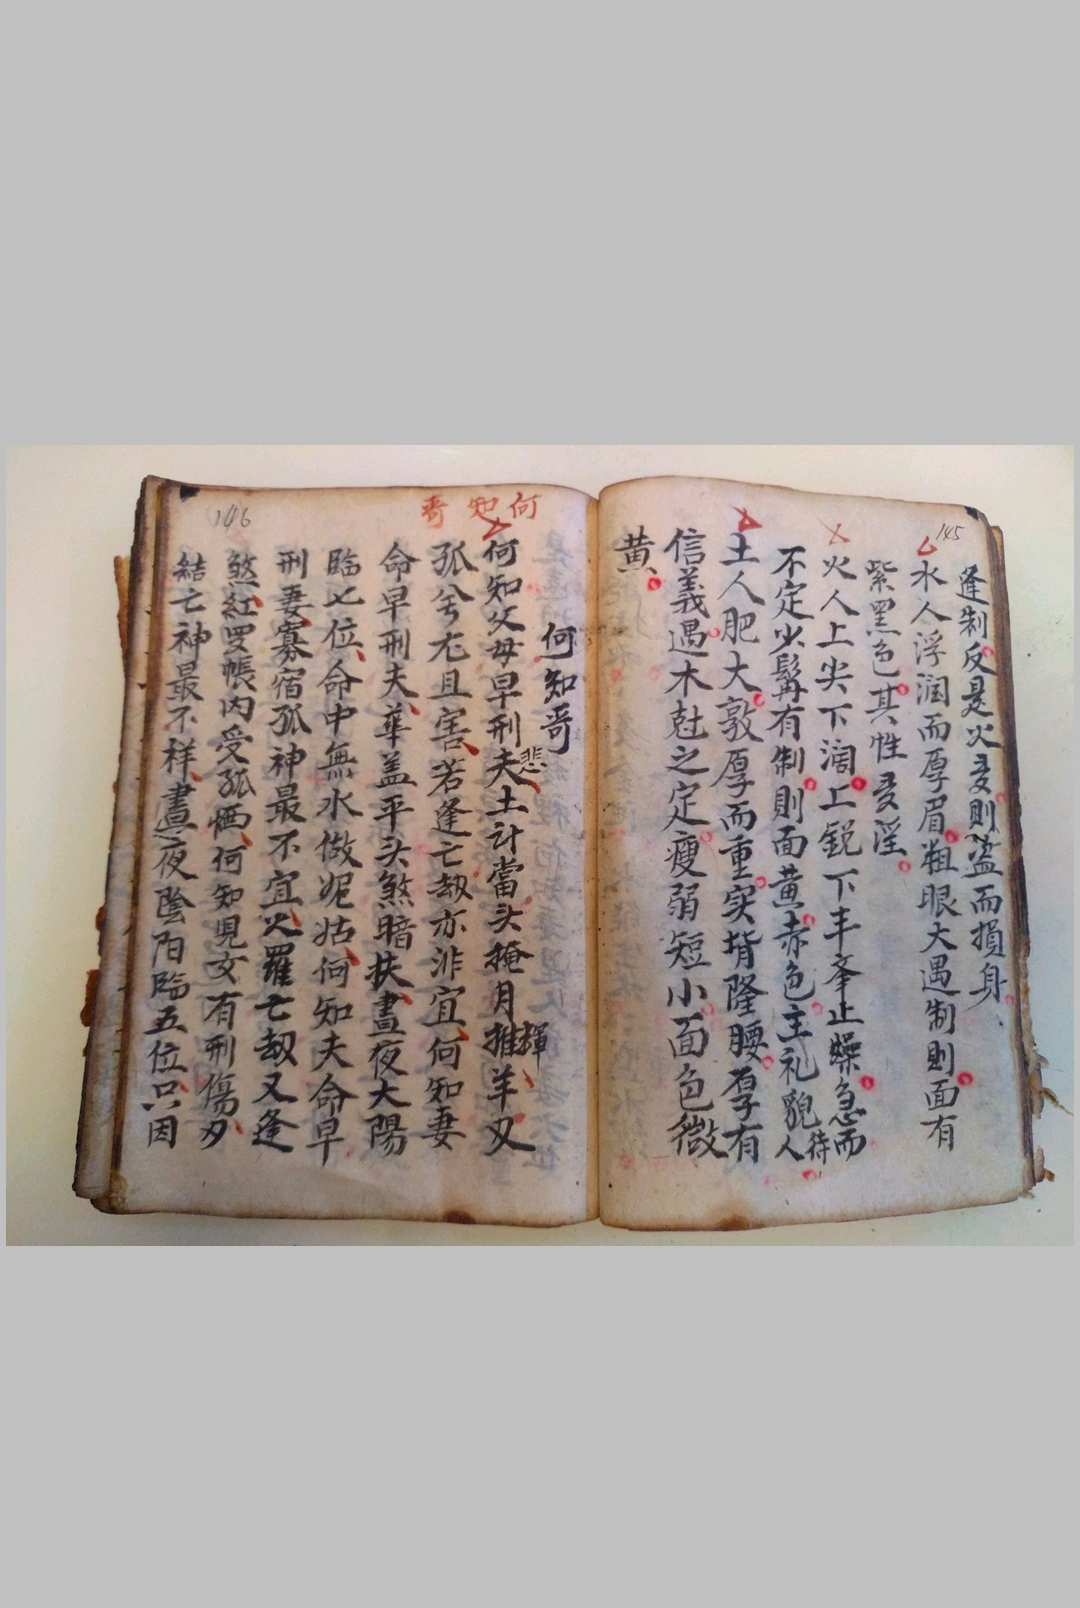 145
逢制反是火多則盜而損身
水人浮润而厚眉粗眼大遇制則面有
紫黑色其性多淫
火人上尖下阔上銳下丰峯止燥急而
不定火髯有制則面黄赤色主礼貌待人
土人肥大敦厚而重实揹隆腰厚有
信義遇木尅之定瘦弱短小面色微
黄
146
何知哥
何知哥
何知父母早刑夫悲土计當头掩月推輝羊刃
孤兮尢且害若逢亡刼亦非宜何知妻
命早刑夫華盖平头煞暗扶晝夜大陽
臨七位命中無水做妮姑何知夫命早
刑妻寡宿孤神最不宜火羅亡刼又逢
煞紅罗帳内受孤恓何知児女有刑傷刃
結亡神最不样晝夜陰阳臨五位只因